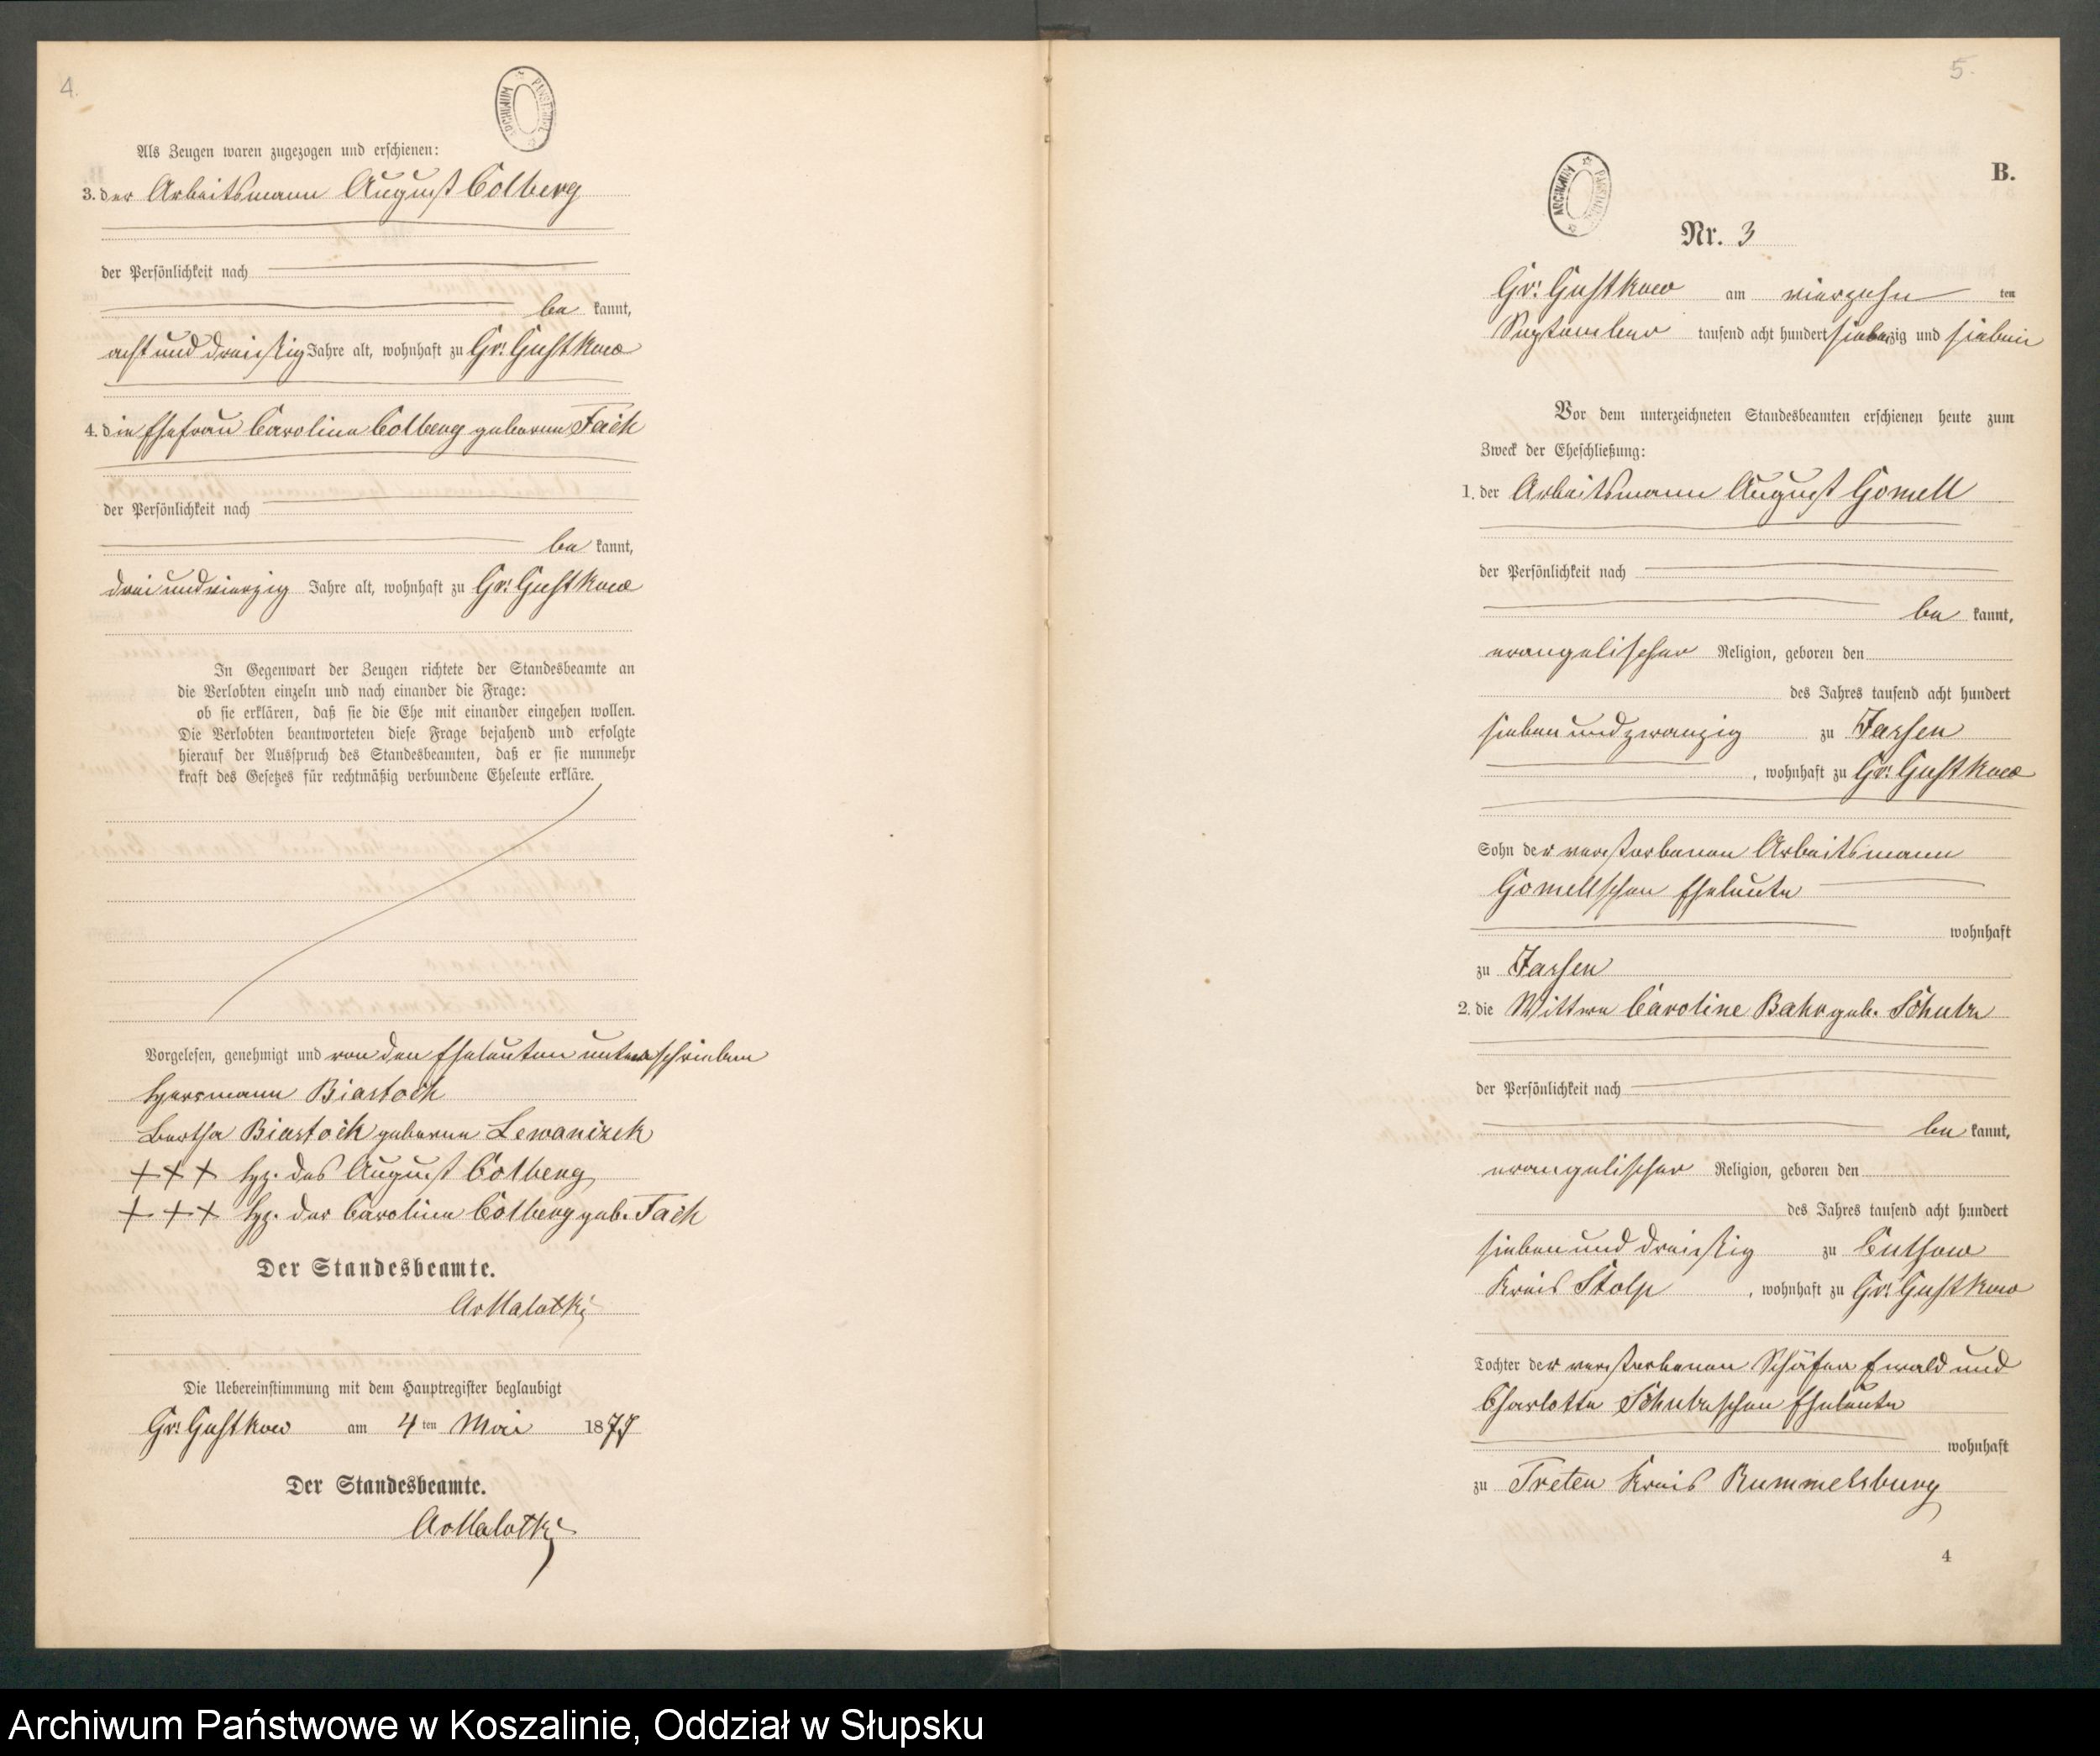 4.
ARCHIWUM PAŃSTWOWE
Als Zeugen waren zugezogen und erschienen:
3. der Arbeitsmann August Colberg
der Persönlichkeit nach
be kannt,
acht und dreissig Jahre alt, wohnhaft zu Gr. Gustkow
4. die Ehefrau Caroline Colberg geborene Fach
der Persönlichkeit nach
be kannt,
drei und vierzig Jahre alt, wohnhaft zu Gr. Gustkow
In Gegenwart der Zeugen richtete der Standesbeamte an
die Verlobten einzeln und nach einander die Frage:
ob sie erklären, daß sie die Ehe mit einander eingehen wollen.
Die Verlobten beantworteten diese Frage bejahend und erfolgte
hierauf der Ausspruch des Standesbeamten, daß er sie nunmehr
kraft des Gesetzes für rechtmäßig verbundene Eheleute erkläre.
Vorgelesen, genehmigt und von den Eheleuten unterschrieben
Herrmann Biastoch
Bertha Biastock geborene Lewanizek
+++ Hz. des August Colberg
+++ Hz. der Caroline Colberg geb. Fach
Der Standesbeamte.
AvMalotki
Die Uebereinstimmung mit dem Hauptregister beglaubigt
Gr. Gustkow am 4 ten Mai 1877
Der Standesbeamte.
AvMalotki
5.
B.
ARCHIWUM PAŃSTWOWE
Nr. 3
Gr. Gustkow am vierzehn ten
September tausend acht hundert siebenzig und sieben
Vor dem unterzeichneten Standesbeamten erschienen heute zum
Zweck der Eheschließung:
1. der Arbeitsmann August Gomell
der Persönlichkeit nach
be kannt,
evangelischer Religion, geboren den
des Jahres tausend acht hundert
sieben und zwanzig zu Jassen
, wohnhaft zu Gr. Gustkow
Sohn der verstorbenen Arbeitsmann
Gomellschen Eheleute
wohnhaft
zu Jassen
2. die Wittwe Caroline Bahr geb. Schulze
der Persönlichkeit nach
be kannt,
evangelischer Religion, geboren den
des Jahres tausend acht hundert
sieben und dreissig zu Culsow
Kreis Stolp , wohnhaft zu Gr. Gustkow
Tochter der verstorbenen Schäfer Ewald und
Charlotte Schulzeschen Eheleute
wohnhaft
zu Treten Kreis Rummelsburg
4
Archiwum Państwowe w Koszalinie, Oddział w Słupsku